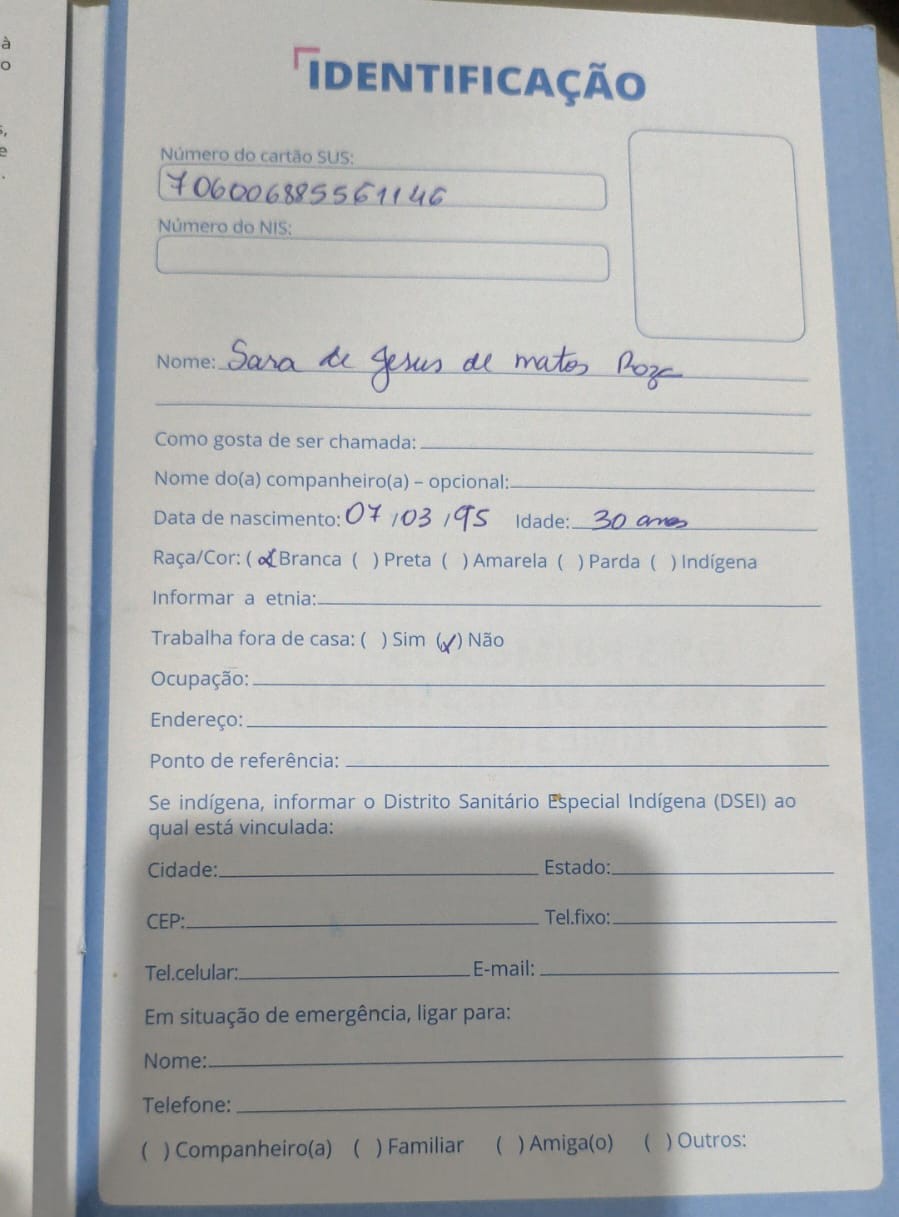 à
o
s,
e
.
IDENTIFICAÇÃO
Número do cartão SUS:
706006885561146
Número do NIS:
Nome: Sara de Jesus de matos Roza
Como gosta de ser chamada:
Nome do(a) companheiro(a) – opcional:
Data de nascimento: 07/03/95 Idade: 30 anos
Raça/Cor: (x) Branca ( ) Preta ( ) Amarela ( ) Parda ( ) Indígena
Informar a etnia:
Trabalha fora de casa: ( ) Sim (x) Não
Ocupação:
Endereço:
Ponto de referência:
Se indígena, informar o Distrito Sanitário Especial Indígena (DSEI) ao
qual está vinculada:
Cidade: Estado:
CEP: Tel.fixo:
Tel.celular: E-mail:
Em situação de emergência, ligar para:
Nome:
Telefone:
( ) Companheiro(a) ( ) Familiar ( ) Amiga(o) ( ) Outros: